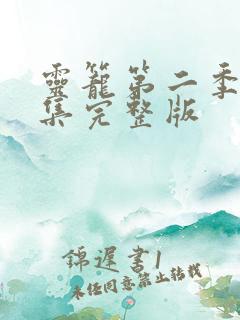 靈籠第二季
集完整版
錦遲書1
未经同意禁止转载